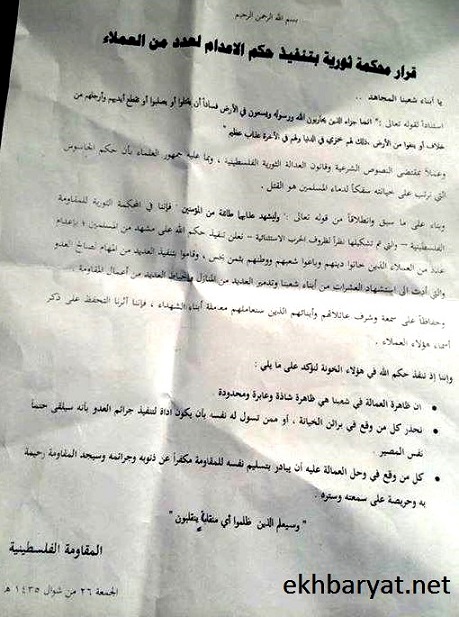 بسم الله الرحمن الرحيم
قرار محكمة ثورية بتنفيذ حكم الاعدام لعدد من العملاء
يا أبناء شعبنا المجاهد ..
استناداً لقوله تعالى :" انما جزاء الذين يحاربون الله ورسوله ويسعون في الأرض فساداً أن يقتلوا أو يصلبوا أو تقطع أيديهم وأرجلهم من
خلاف أو ينفوا من الأرض ، ذلك لهم خزي في الدنيا ولهم في الأخرة عذاب عظيم "
وعملاً بمقتضى النصوص الشرعية وقانون العدالة الثورية الفلسطينية ، وبما عليه جمهور العلماء بأن حكم الجاسوس
الذي ترتب على خيانته سفكاً لدماء المسلمين هو القتل .
وبناء على ما سبق وانطلاقاً من قوله تعالى :" وليشهد عذابهما طائفة من المؤمنين " فإننا في المحكمة الثورية للمقاومة
الفلسطينية – والتي تم تشكيلها نظراً لظروف الحرب الاستثنائية – نعلن تنفيذ حكم الله على مشهد من المسلمين ؛ بإعدام
عدد من العملاء الذين خانوا دينهم وباعوا شعبهم ووطنهم بثمن بخس ، وقاموا بتنفيذ العديد من المهام لصالح العدو
والتي أدت الى استشهاد العشرات من أبناء شعبنا وتدمير العديد من المنازل وإحباط العديد من أعمال المقاومة .
وحفاظاً على سمعة وشرف عائلاتهم وأبنائهم الذين سنعاملهم معاملة أبناء الشهداء ، فإننا آثرنا التحفظ على ذكر
أسماء هؤلاء العملاء .
واننا إذ ننفذ حكم الله في هؤلاء الخونة لنؤكد على ما يلي :
• ان ظاهرة العمالة في شعبنا هي ظاهرة شاذة وعابرة ومحدودة
• نحذر كل من وقع في براثن الخيانة ، أو ممن تسول له نفسه بأن يكون أداة لتنفيذ جرائم العدو بأنه سيلقى حتماً
نفس المصير .
• كل من وقع في وحل العمالة عليه أن يبادر بتسليم نفسه للمقاومة مكفراً عن ذنوبه وجرائمه وسيجد المقاومة رحيمة
به وحريصة على سمعته وستره .
" وسيعلم الذين ظلموا أي منقلب ينقلبون "
المقاومة الفلسطينية
الجمعة ٢٦ من شوال ١٤٣٥ هـ
ekhbaryat.net